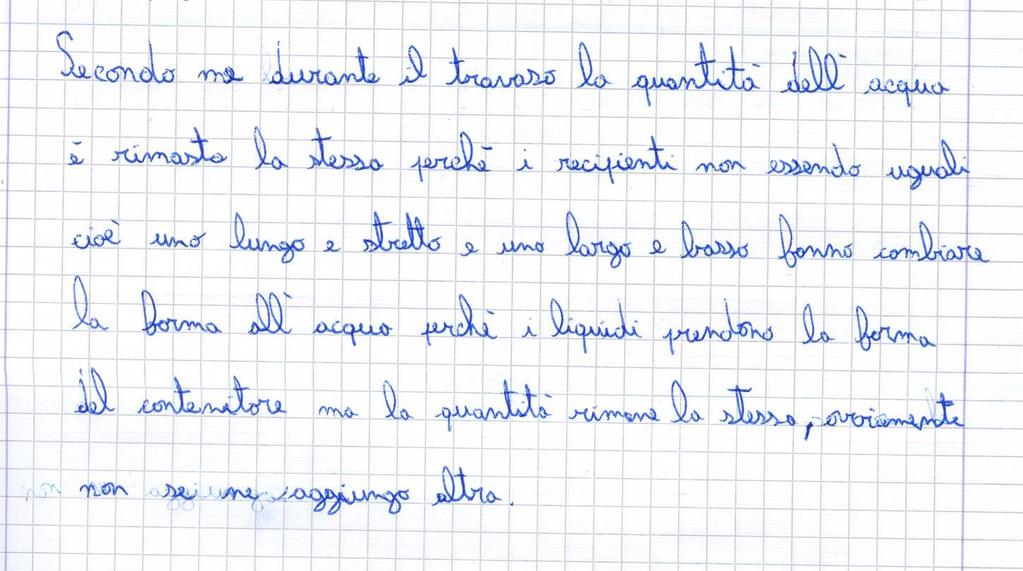 Secondo me durante il travaso la quantità dell'acqua
è rimasta la stessa perchè i recipienti non essendo uguali
cioè uno lungo e stretto e uno largo e basso fanno cambiare
la forma all'acqua perchè i liquidi prendono la forma
del contenitore ma la quantità rimane la stessa, ovviamente
non se ne aggiungo altra.